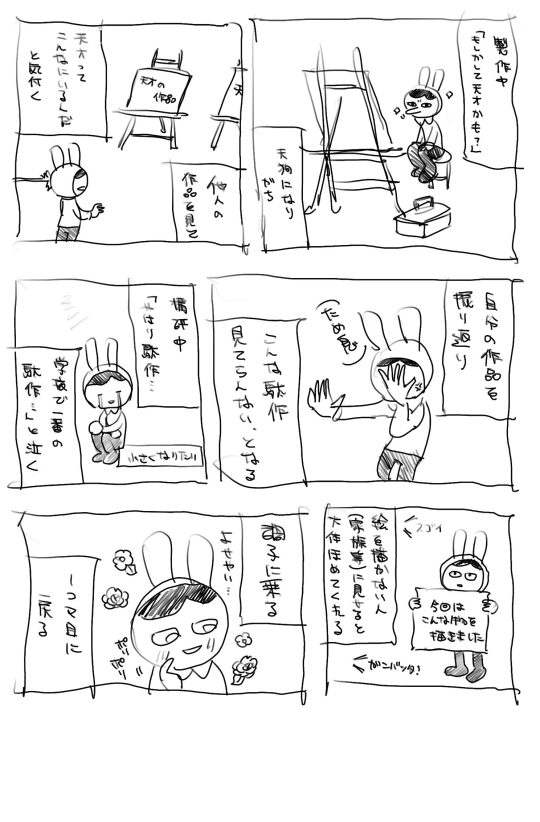 製作中
「もしかして天才かも?」
天狗になり
がち
天才の
作品
天
他人の
作品を見て
天才って
こんなにいるんだ
と気付く
自分の作品を
振り返り
(ため息)
こんな駄作
見てらんない、となる
講評中
「やはり駄作…
小さくなりたい
学校で一番の
駄作…」と泣く
スゴイ
今回は
こんな を
描きました
絵を描かない人
(家族等)に見せると
大体ほめてくれる
ガンバッタ!
調子に乗る
よせやい…
ポリポリ
1コマ目に
戻る